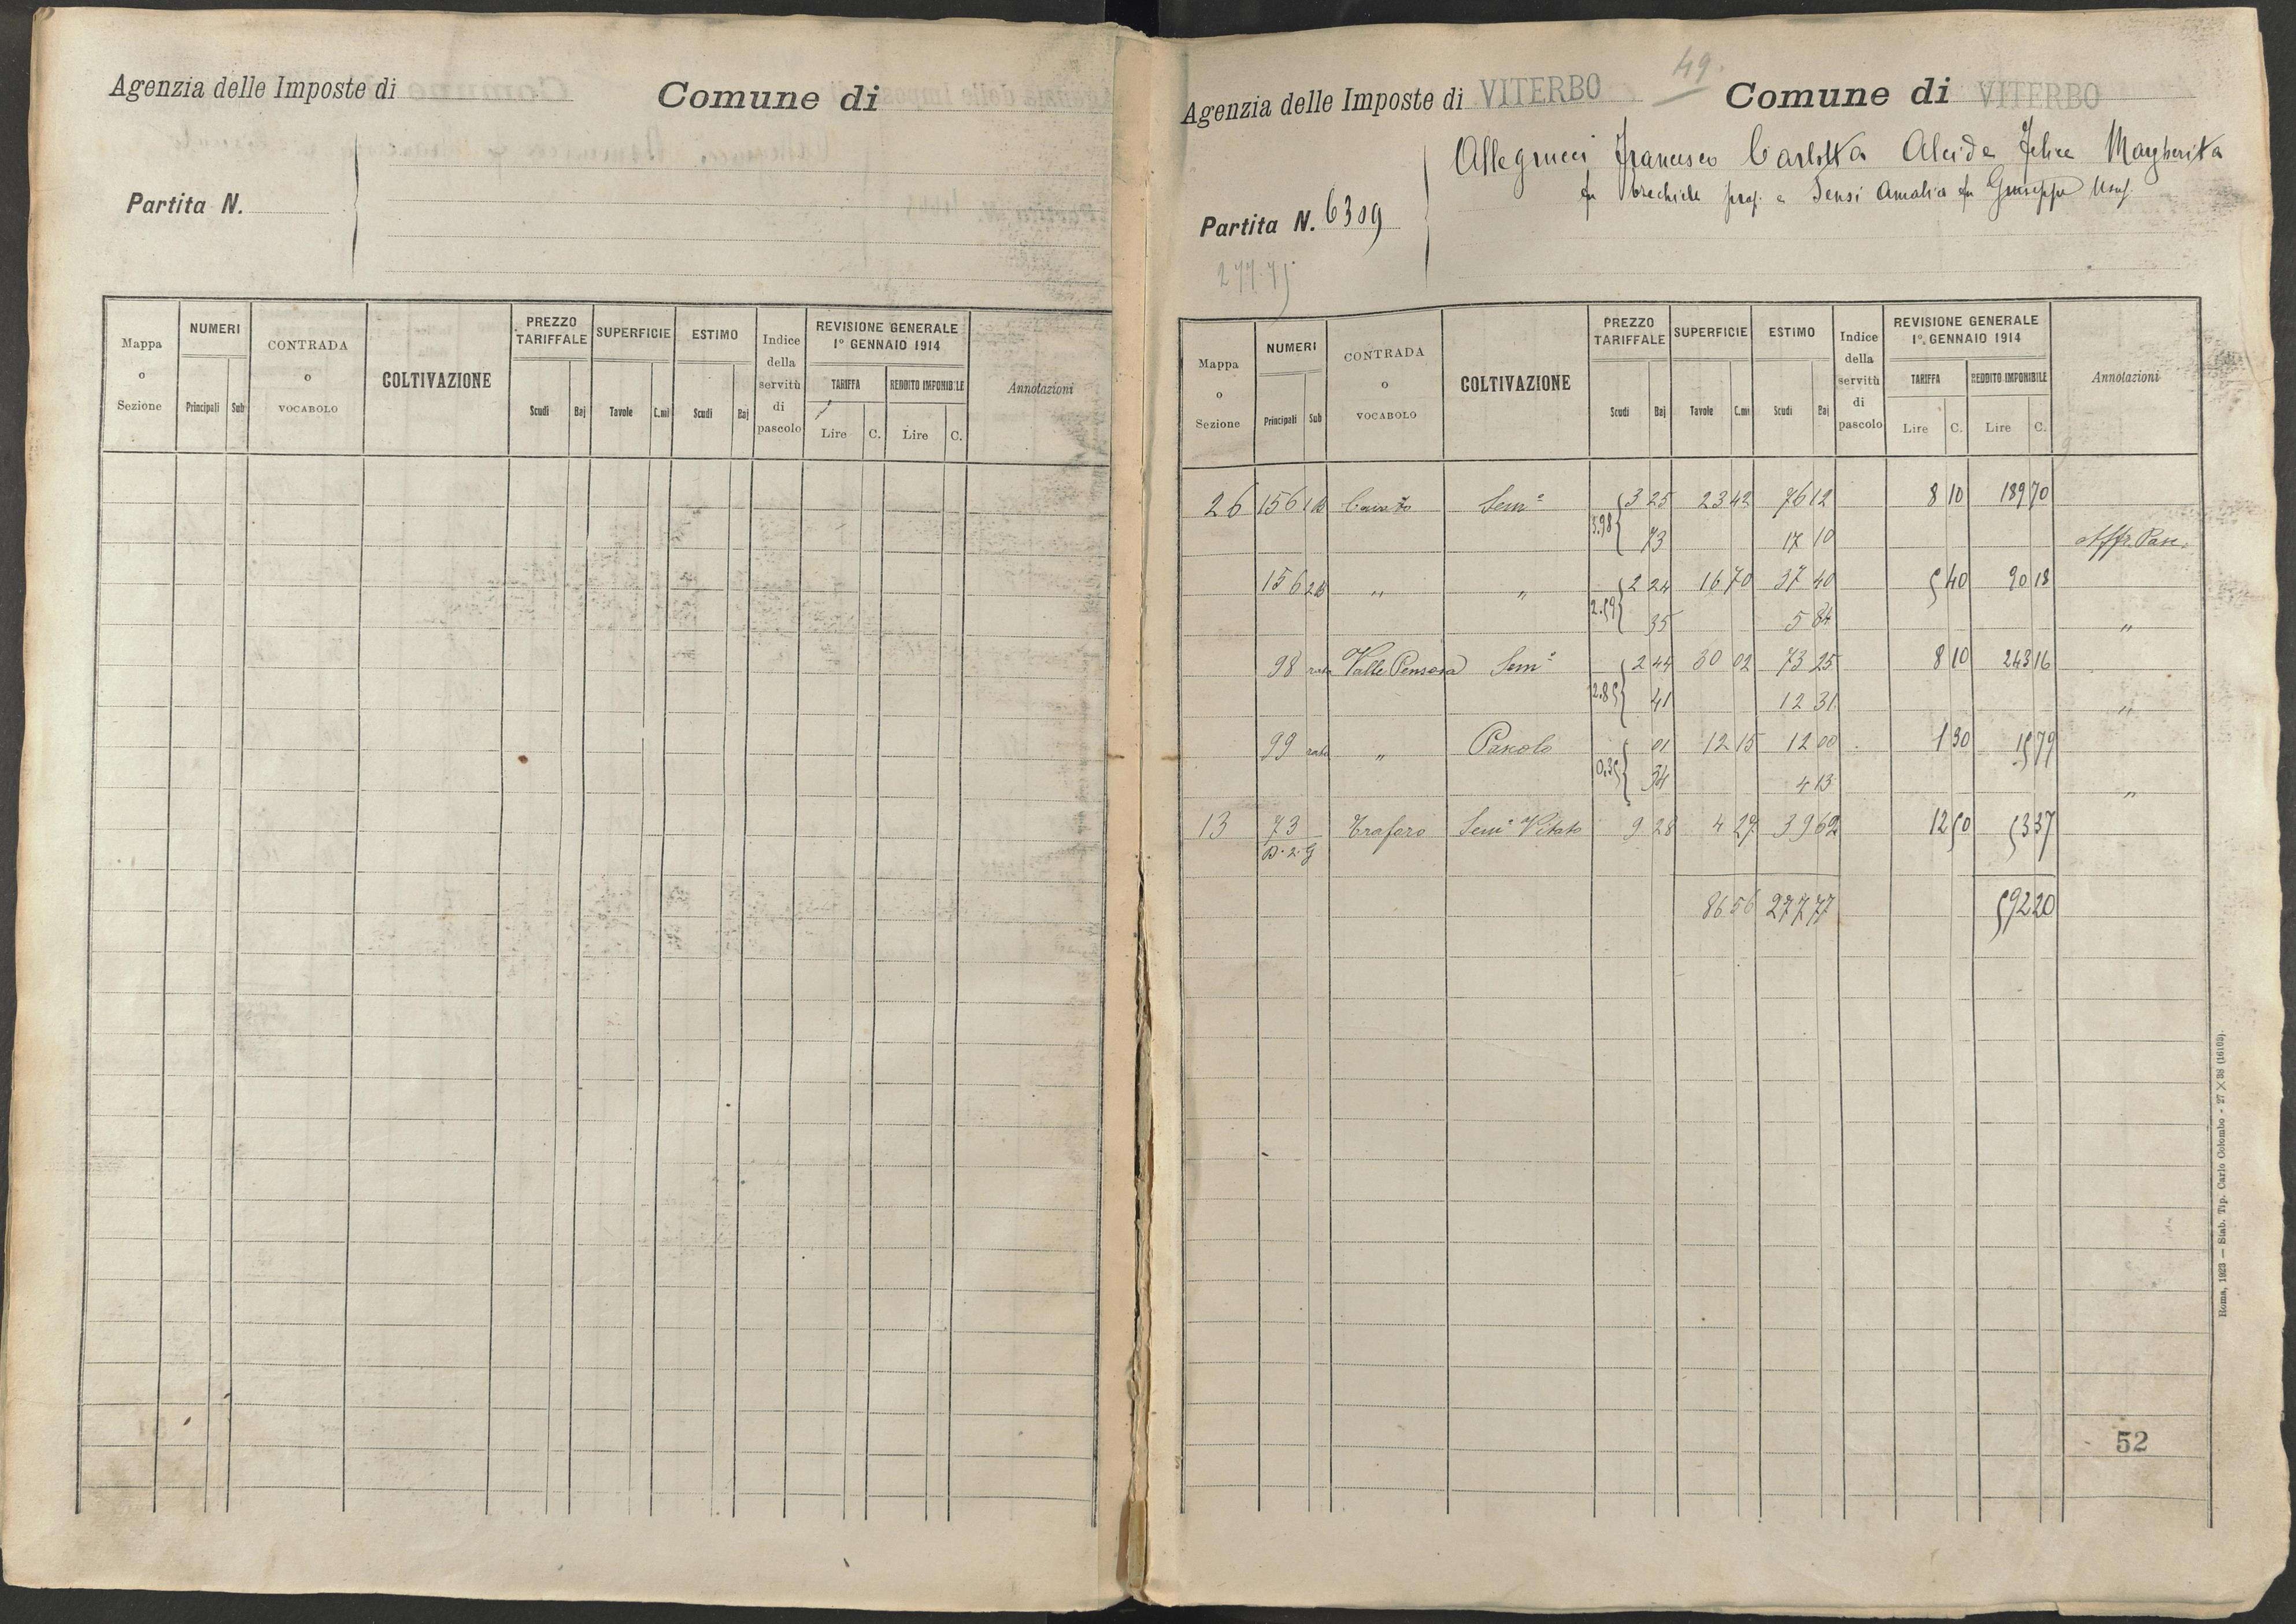 Agenzia delle Imposte di
Comune di
Partita N.
Mappa o Sezione
NUMERI
Principali Sub
CONTRADA o VOCABOLO
COLTIVAZIONE
PREZZO TARIFFALE
Scudi Baj
SUPERFICIE
Tavole C.mi
ESTIMO
Scudi Baj
Indice della servitù di pascolo
REVISIONE GENERALE 1° GENNAIO 1914
TARIFFA REDDITO IMPONIBILE
Lire C. Lire C.
Annotazioni
49.
Agenzia delle Imposte di VITERBO Comune di VITERBO
Allegrucci Francesco Carlotta Alcide Felice Margherita
fu prop. e Sensi Amalia fu Giuseppe Usuf.
Partita N. 6309
277.75
Mappa o Sezione
NUMERI
Principali Sub
CONTRADA o VOCABOLO
COLTIVAZIONE
PREZZO TARIFFALE
Scudi Baj
SUPERFICIE
Tavole C.mi
ESTIMO
Scudi Baj
Indice della servitù di pascolo
REVISIONE GENERALE 1° GENNAIO 1914
TARIFFA REDDITO IMPONIBILE
Lire C. Lire C.
Annotazioni
26 156 1 Semo 3 25 23 42 76 12 8 10 189 70
3.98 73 17 10 Affr. Pasc.
156 2 " " 2 24 16 70 37 40 5 40 90 18
2.59 35 5 84 "
98 rata Valle Pensosa Semo 2 44 30 02 73 25 8 10 243 16
2.85 41 12 31 "
99 rata " Pascolo 01 12 15 12 00 1 30 15 79
0.35 34 4 13 "
13 73 Traforo Semo Vitato 9 28 4 27 39 62 12 50 53 37
D. 2. g
86 56 277 77 592 20
52
Roma, 1923 — Stab. Tip. Carlo Colombo - 27 X 38 (16168).